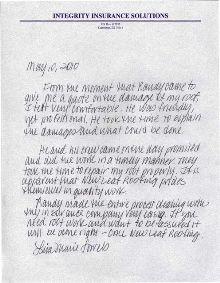 INTEGRITY INSURANCE SOLUTIONS
May 10, 2010
From the moment that Randy came to
give me a quote on the damage at my roof
I felt very comfortable. He was friendly,
yet professional. He took the time to explain
the damages and what could be done.
He and his crew came the day promised
and did the work in a timely manner. They
took the time to repair my roof properly. It is
apparent that New Leaf Roofing prides
themselves in quality work.
Randy made the entire process dealing with
my insurance company very easy. If you
need roof work and want to be assured it
will be done right - call New Leaf Roofing.
Lisa Marie